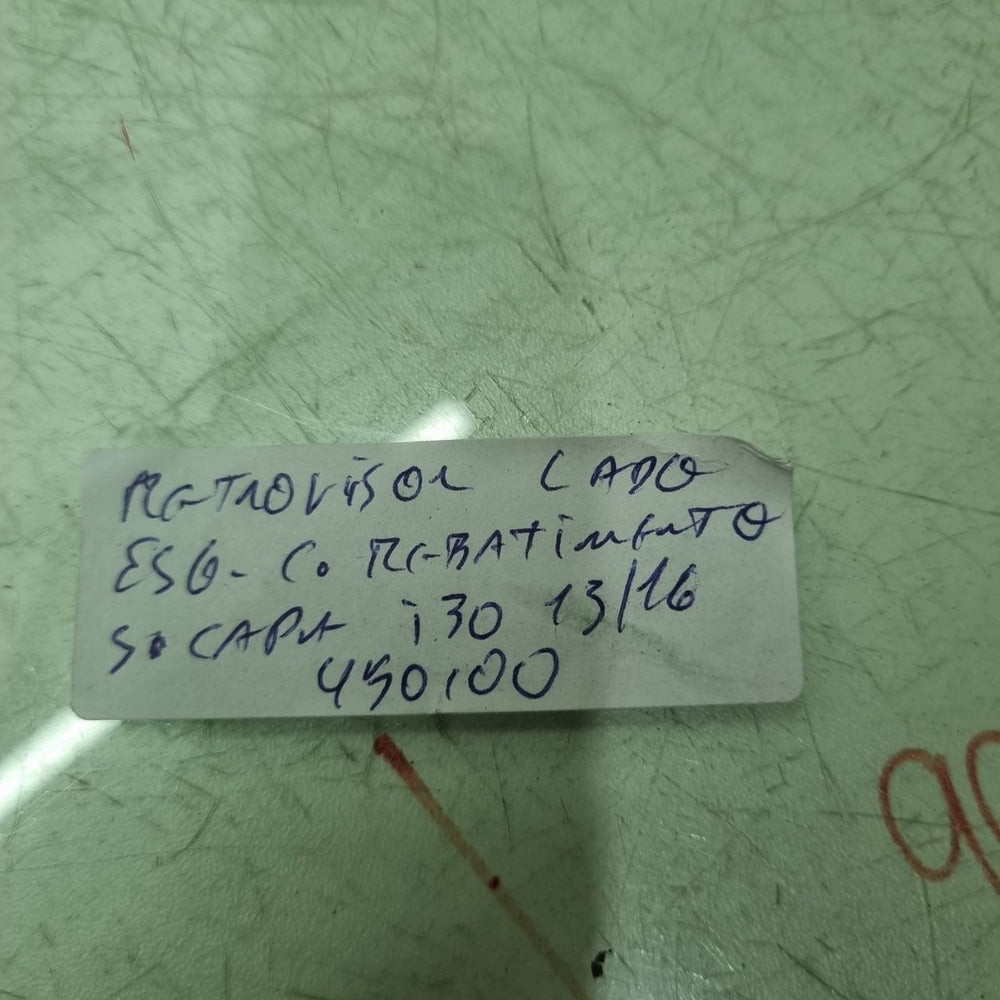 RETROVISOR LADO
ESQ. C. REBATIMENTO
S. CAPA i30 13/16
450,00